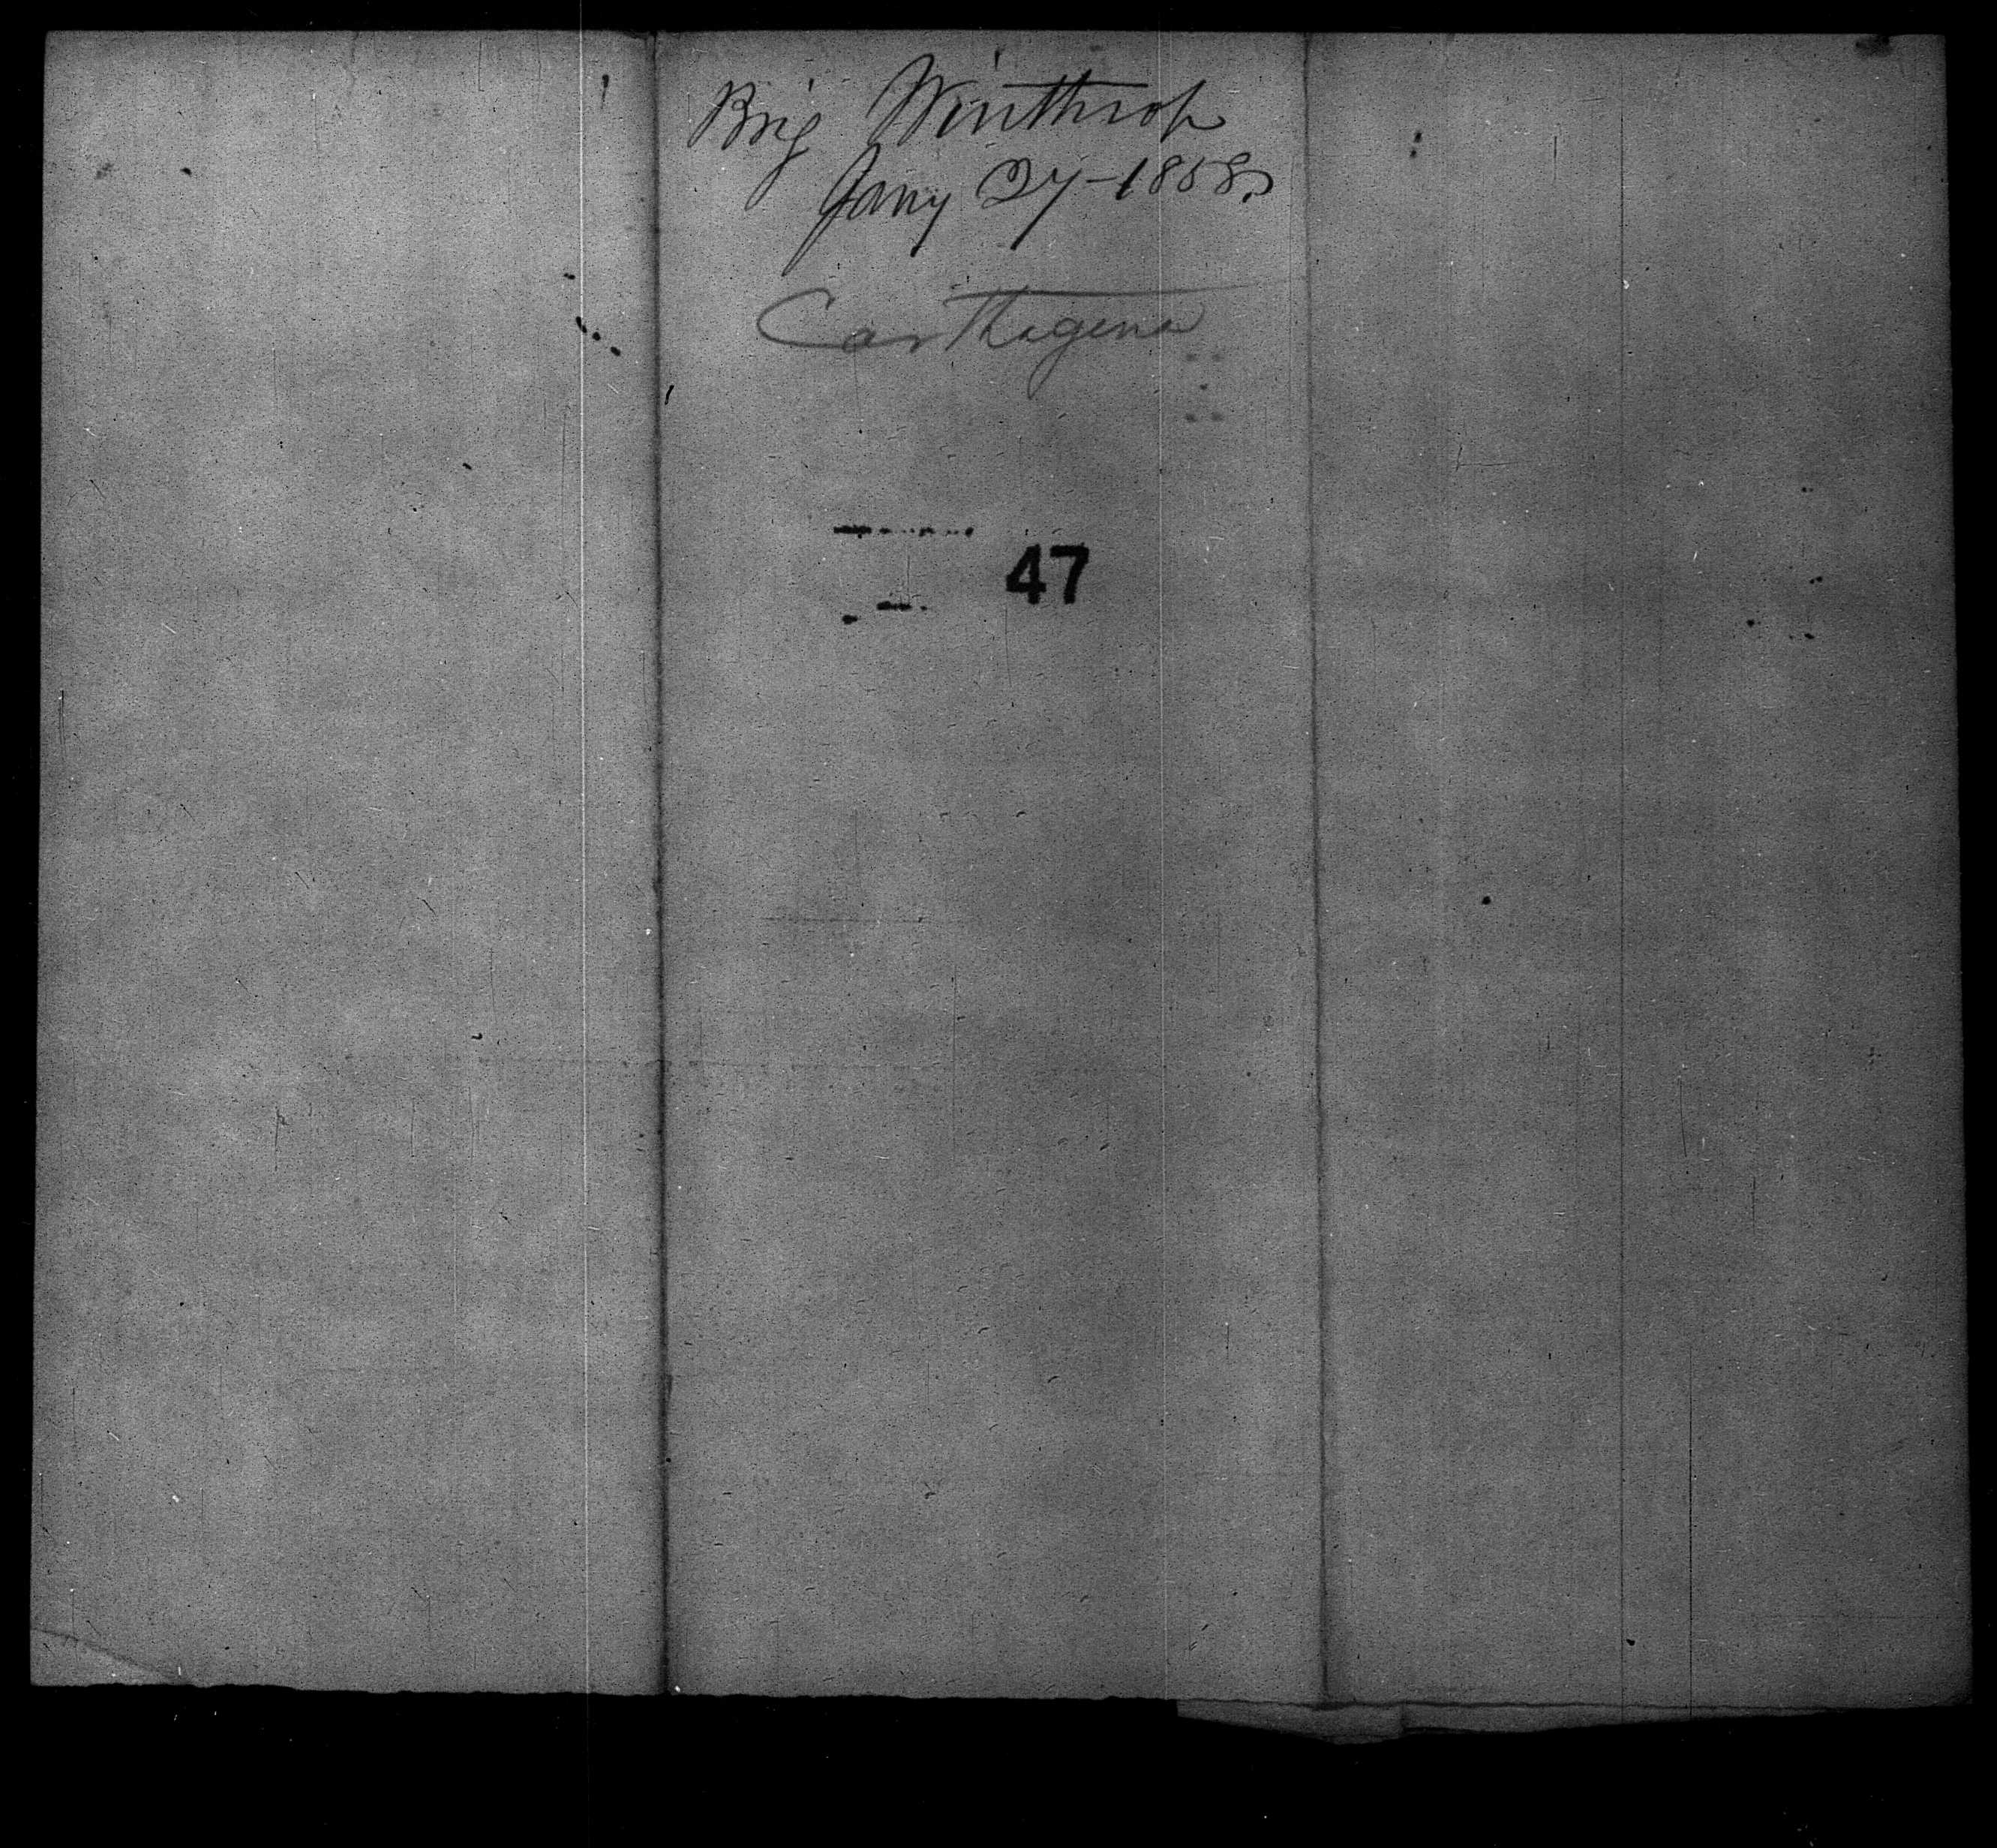 Brig Winthrop
Jany 27-1858.
Carthagena
47